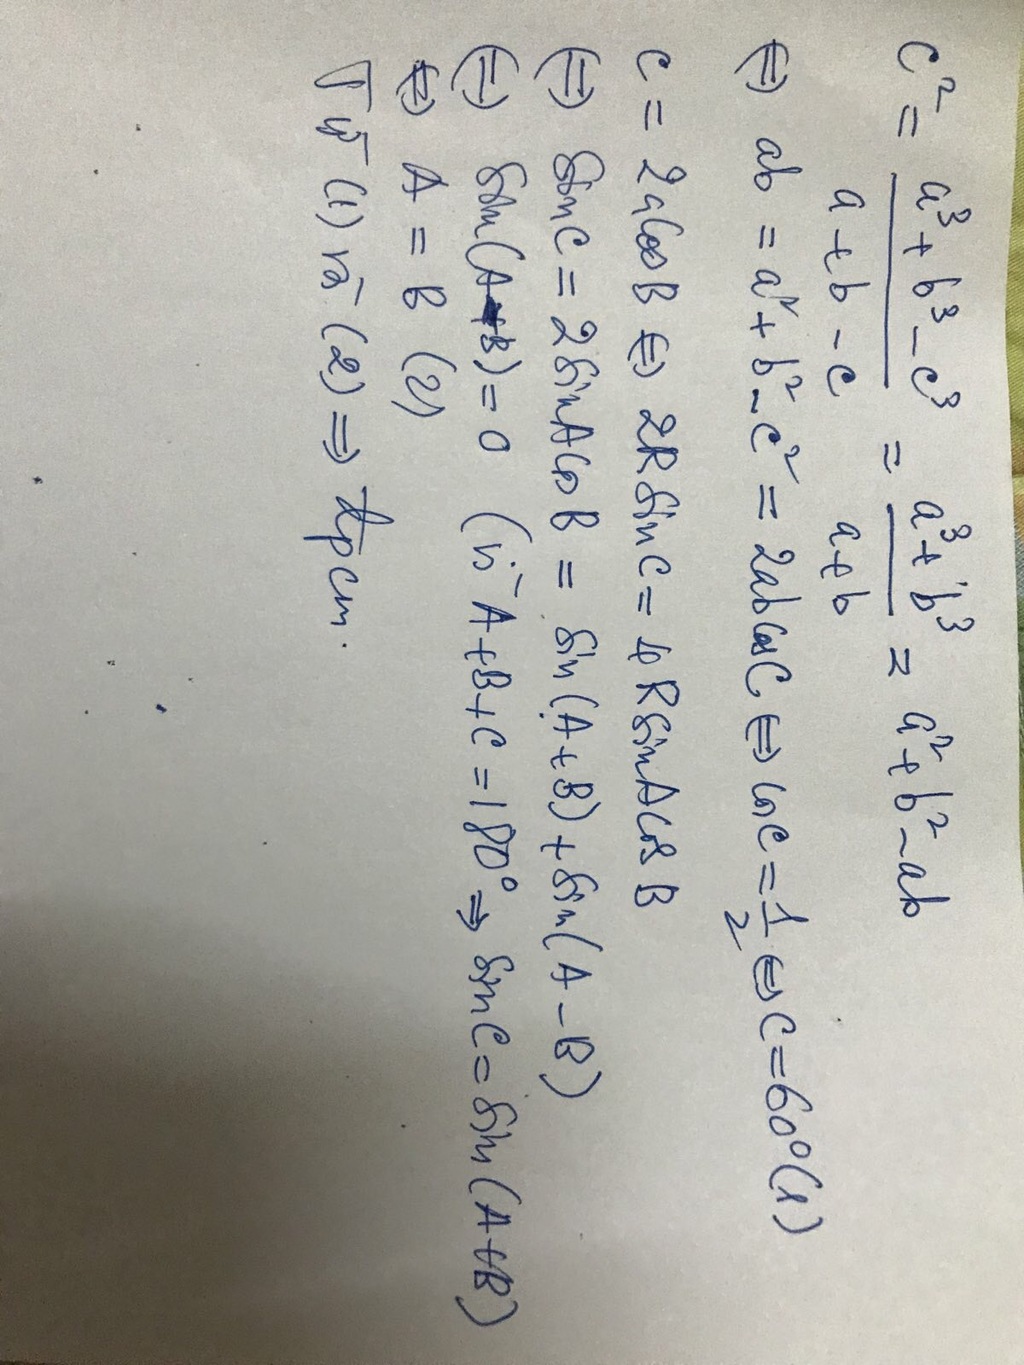 c² = (a³ + b³ - c³)/(a + b - c) = (a³ + b³)/(a + b) = a² + b² - ab
⇔ ab = a² + b² - c² = 2ab cosC ⇔ cosC = 1/2 ⇔ C = 60° (1)
c = 2a cosB ⇔ 2R sinC = 4R sinA cosB
⇔ sinC = 2 sinA cosB = sin(A+B) + sin(A-B)
⇔ sin(A-B) = 0 (vì A+B+C = 180° ⇒ sinC = sin(A+B)
⇔ A = B (2)
Từ (1) và (2) ⇒ đpcm.